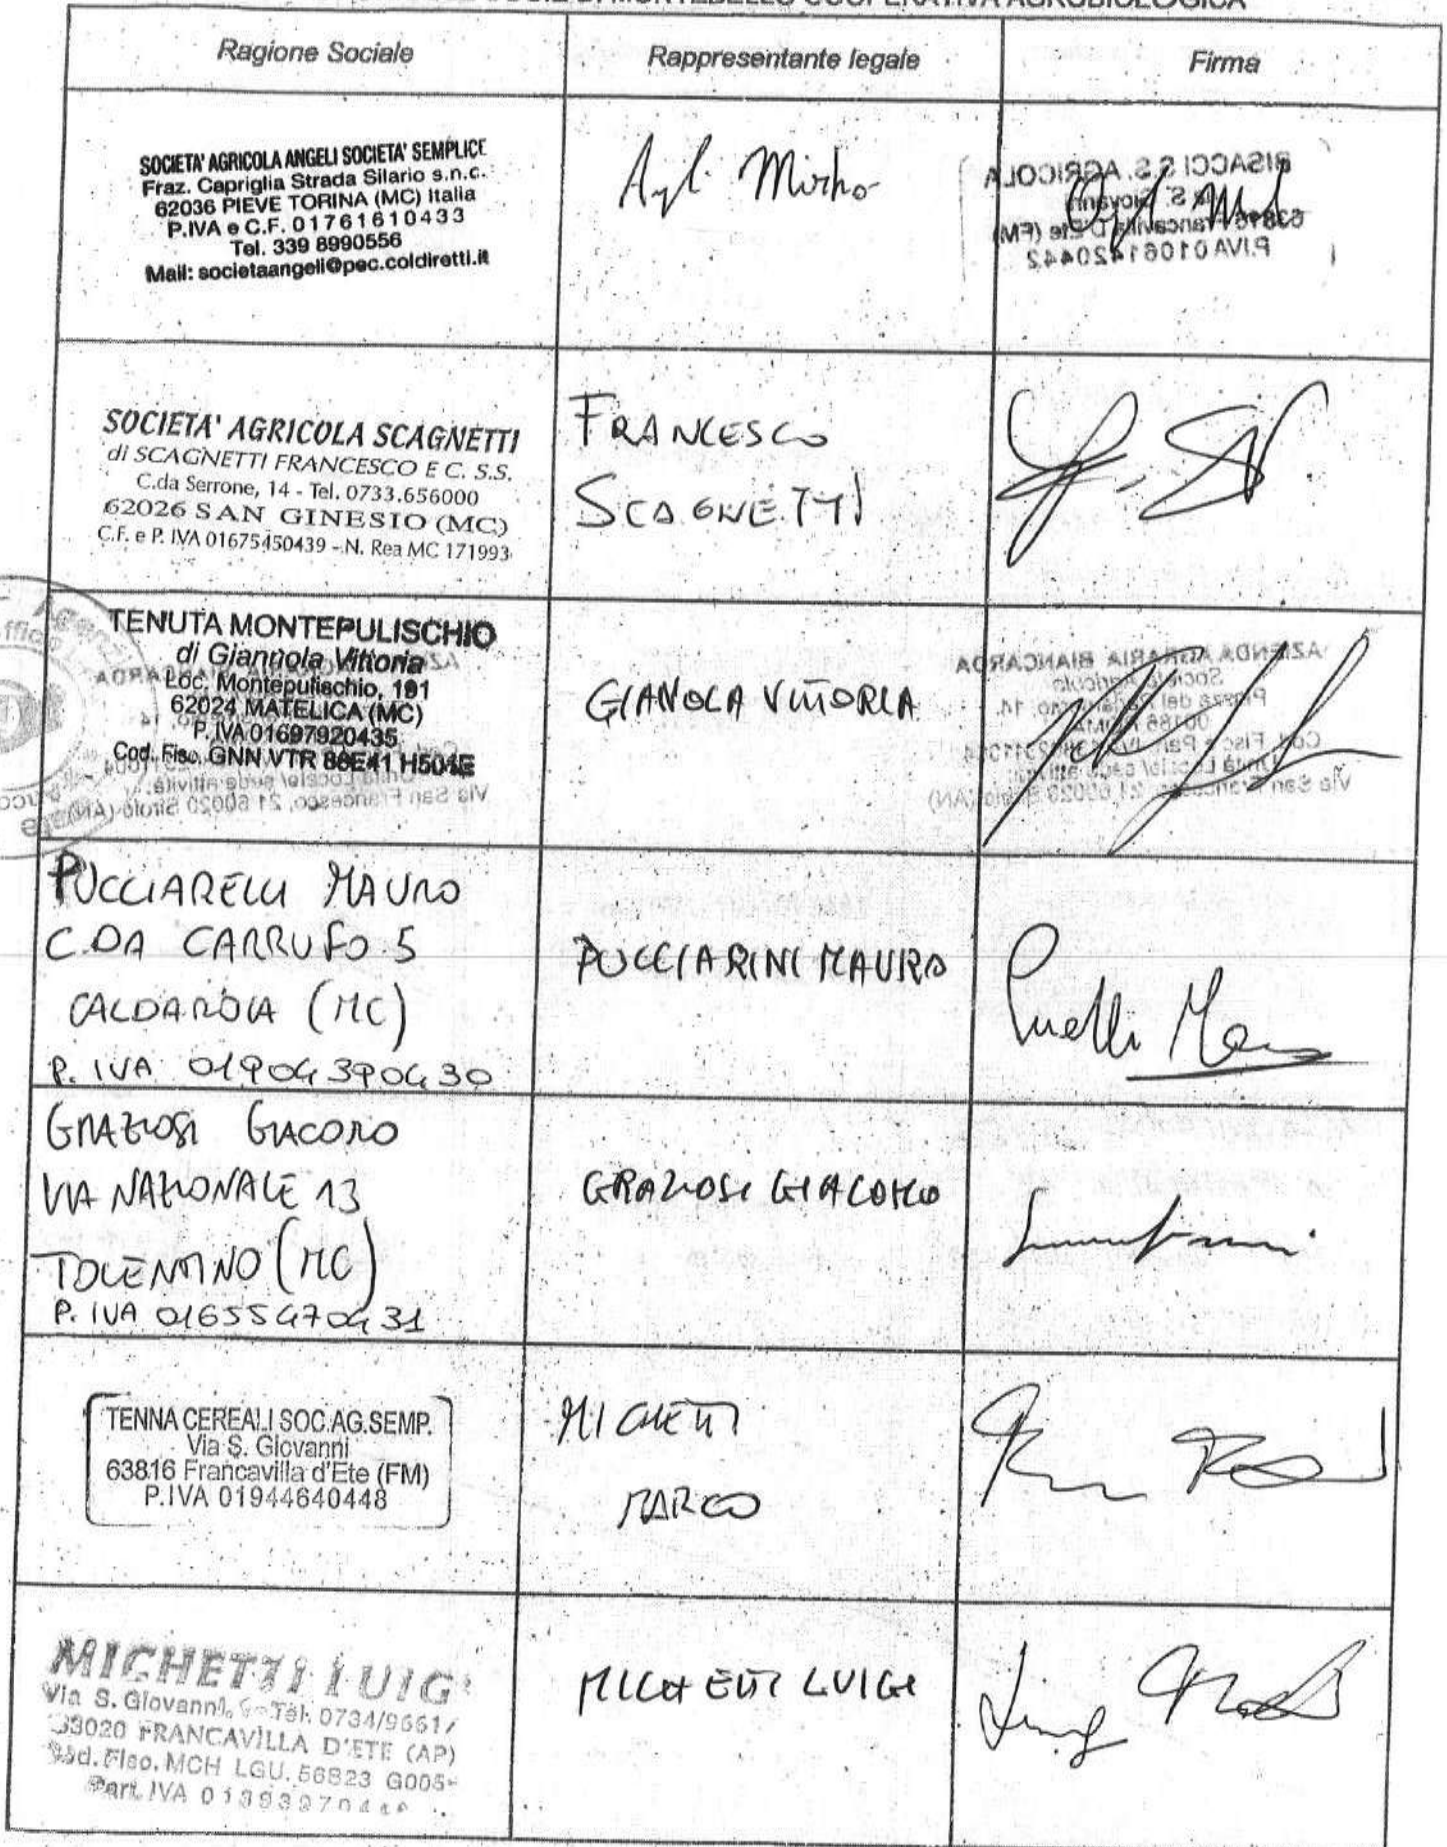 DI MONTEBELLO COOPERATIVA AGROBIOLOGICA
Ragione Sociale
Rappresentante legale
Firma
SOCIETA' AGRICOLA ANGELI SOCIETA' SEMPLICE
Fraz. Capriglia Strada Silario s.n.c.
62036 PIEVE TORINA (MC) Italia
P.IVA e C.F. 01761610433
Tel. 339 8990556
Mail: societaangeli@pec.coldiretti.it
Mirko
BISACCI S.S. AGRICOLA
P.IVA 01061420442
SOCIETA' AGRICOLA SCAGNETTI
di SCAGNETTI FRANCESCO E C. S.S.
C.da Serrone, 14 - Tel. 0733.656000
62026 SAN GINESIO (MC)
C.F. e P. IVA 01675450439 - N. Rea MC 171993
FRANCESCO
SCAGNETTI
TENUTA MONTEPULISCHIO
di Giannola Vittoria
Loc. Montepulischio, 191
62024 MATELICA (MC)
P. IVA 01697920435
Cod. Fisc. GNN VTR 86E41 H501E
Via San Francesco, 21 60020 Sirolo (AN)
GIANOLA VITTORIA
AZIENDA AGRARIA BIANCARDA
Società Agricola
Via San Francesco, 21 60020 Sirolo (AN)
PUCCIARELLI MAURO
C.DA CARRUFO 5
CALDAROLA (MC)
P. IVA 01904390430
PUCCIARINI MAURO
GRAZIOSI GIACOMO
VIA NAZIONALE 13
TOLENTINO (MC)
P. IVA 01655470431
GRAZIOSI GIACOMO
TENNA CEREALI SOC.AG.SEMP.
Via S. Giovanni
63816 Francavilla d'Ete (FM)
P.IVA 01944640448
MICHETTI
MARCO
MICHETTI LUIGI
Via S. Giovanni, Tel. 0734/9661
63020 FRANCAVILLA D'ETE (AP)
Cod. Fisc. MCH LGU. 56B23 G005
Part. IVA
MICHETTI LUIGI